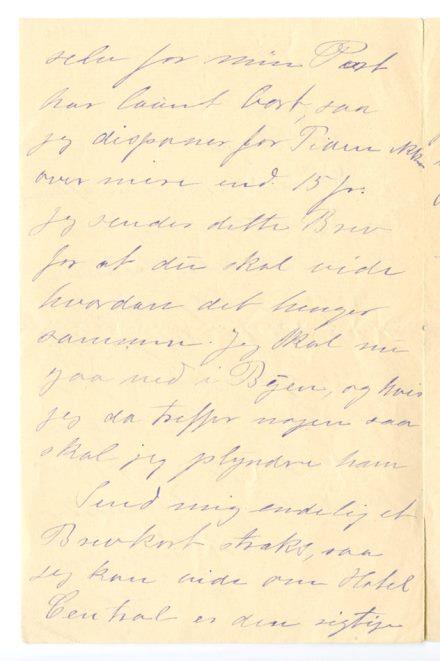 selv for min Part
har laant bort, saa
jeg disponer for Tiden ikke
over mere end 15 fr.
Jeg sender dette Brev
for at du skal vide
hvordan det henger
sammen. Jeg skal nu
gaa ned i Byen, og hvis
jeg da treffer nogen saa
skal jeg plyndre ham
Send mig endelig et
Brevkort straks, saa
jeg kan vide om Hotel
Central er den rigtige